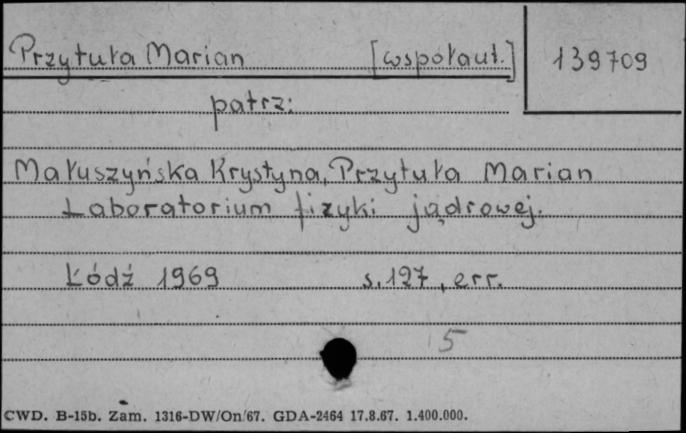 Przytuła Marian [współaut.] 139709
patrz:
Małuszyńska Krystyna, Przytuła Marian
Laboratorium fizyki jądrowej.
Łódź 1969 s. 127, err.
5
CWD. B-15b. Zam. 1316-DW/On/67. GDA-2464 17.8.67. 1.400.000.